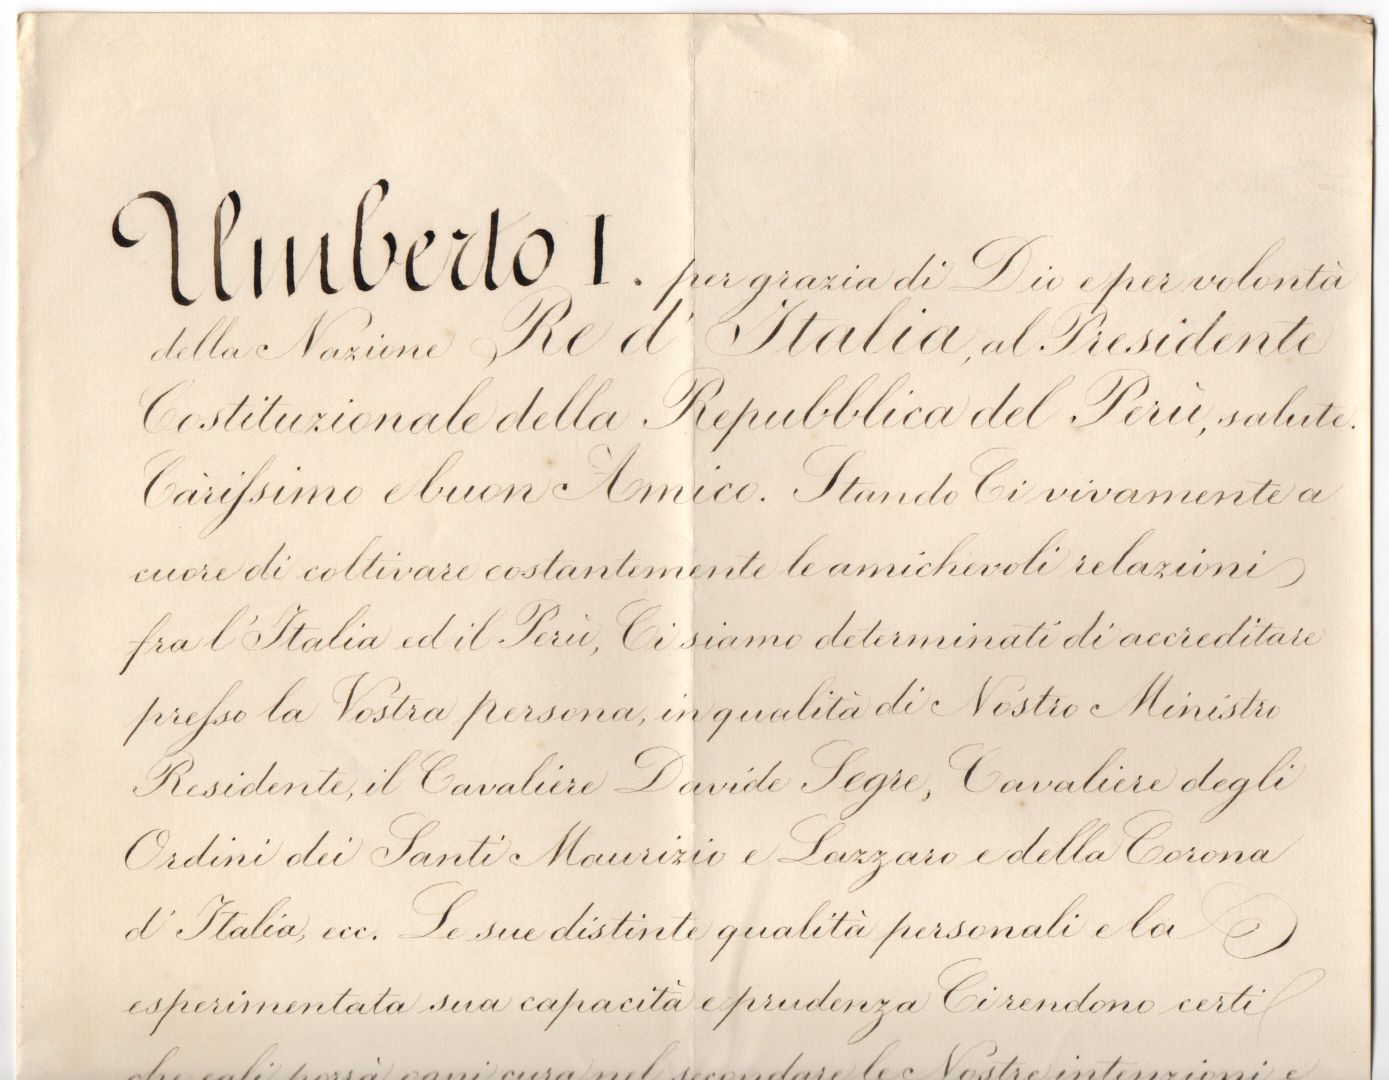 Umberto I. per grazia di Dio e per volontà
della Nazione Re d'Italia, al Presidente
Costituzionale della Repubblica del Perù, salute.
Carissimo e buon Amico. Stando Ci vivamente a
cuore di coltivare costantemente le amichevoli relazioni
fra l'Italia ed il Perù, Ci siamo determinati di accreditare
presso la Vostra persona, in qualità di Nostro Ministro
Residente, il Cavaliere Davide Segre, Cavaliere degli
Ordini dei Santi Maurizio e Lazzaro e della Corona
d'Italia, ecc. Le sue distinte qualità personali e la
esperimentata sua capacità e prudenza Ci rendono certi
che egli porrà ogni cura nel secondare le Nostre intenzioni e